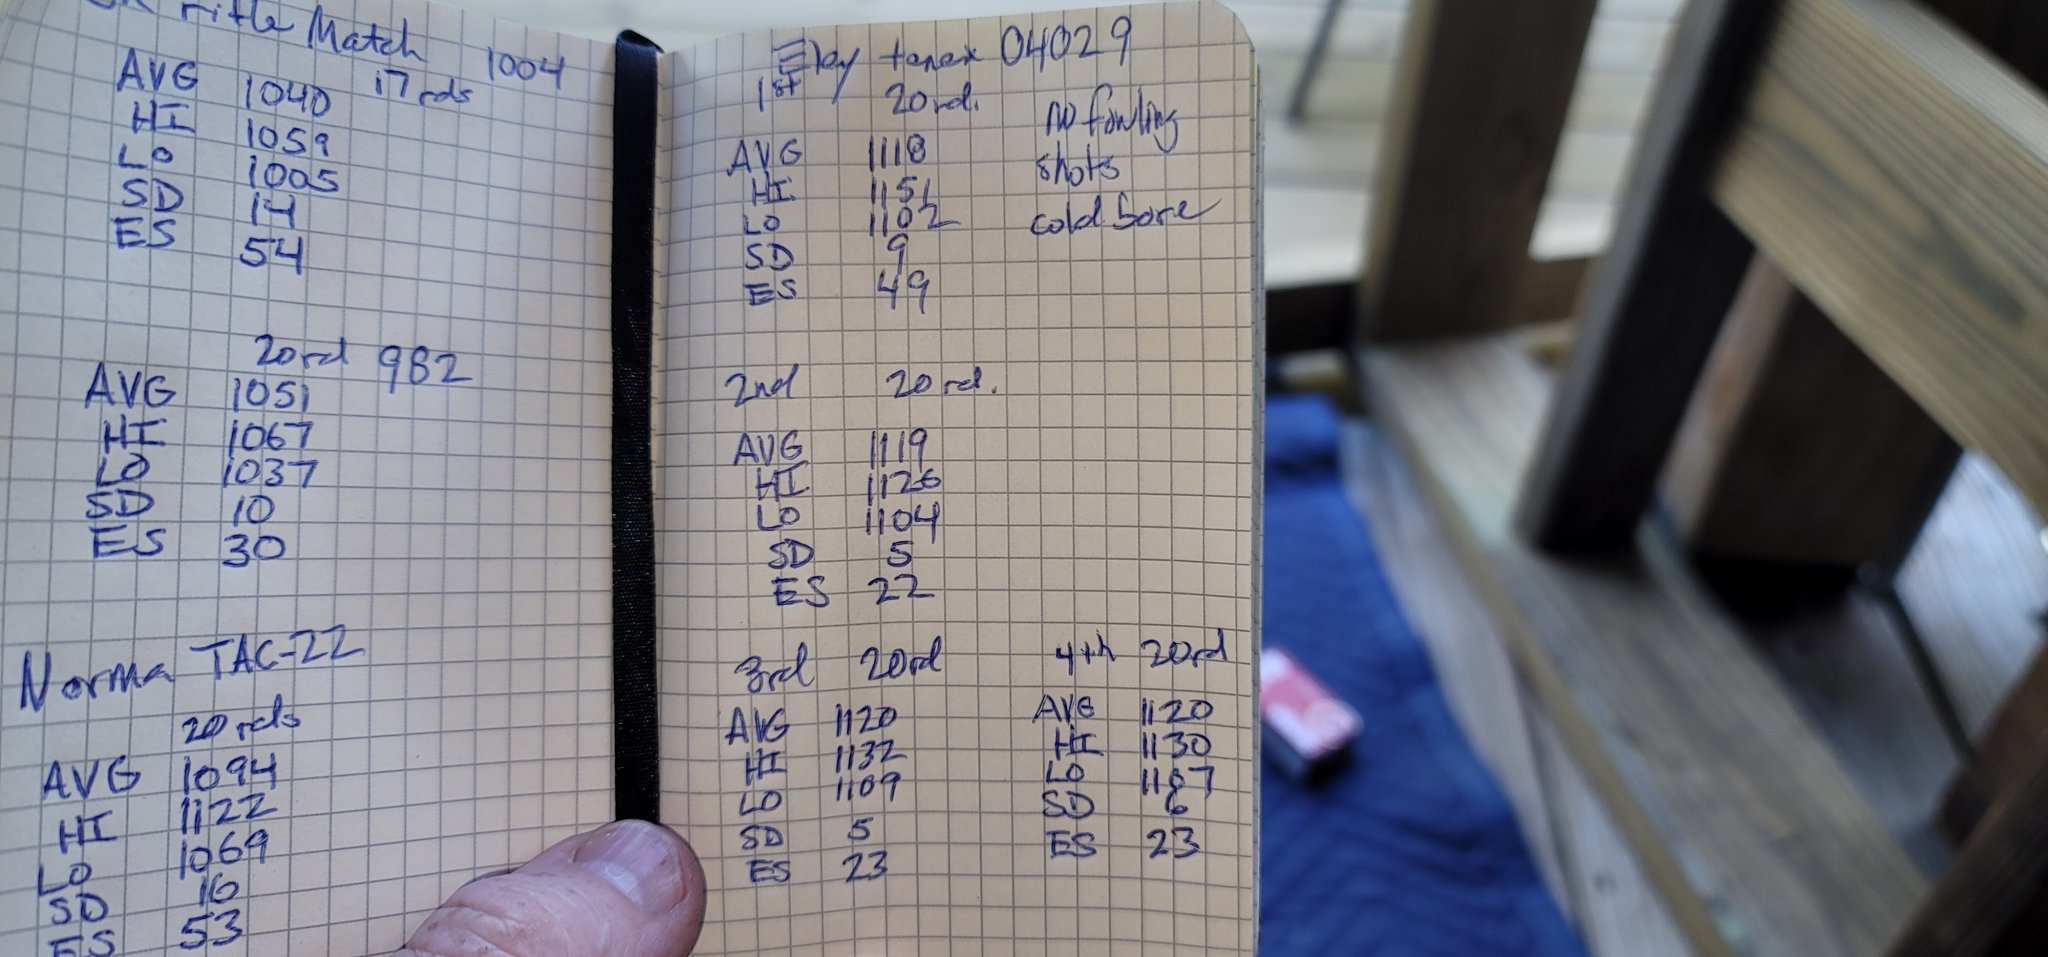 Rifle Match 1004
AVG 1040 17 rds
HI 1059
LO 1005
SD 14
ES 54
20rd 982
AVG 1051
HI 1067
LO 1037
SD 10
ES 30
Norma TAC-22
20 rds
AVG 1094
HI 1122
LO 1069
SD 16
ES 53
Eley tenex 04029
1st 20rd. no fowling
AVG 1118 shots
HI 1151 cold bore
LO 1102
SD 9
ES 49
2nd 20rd.
AVG 1119
HI 1126
LO 1104
SD 5
ES 22
3rd 20rd
AVG 1120
HI 1132
LO 1109
SD 5
ES 23
4th 20rd
AVG 1120
HI 1130
LO
SD 6
ES 23